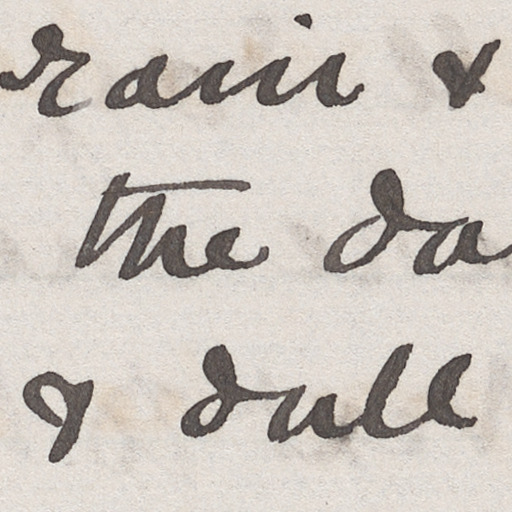 rain &
the da
& dull